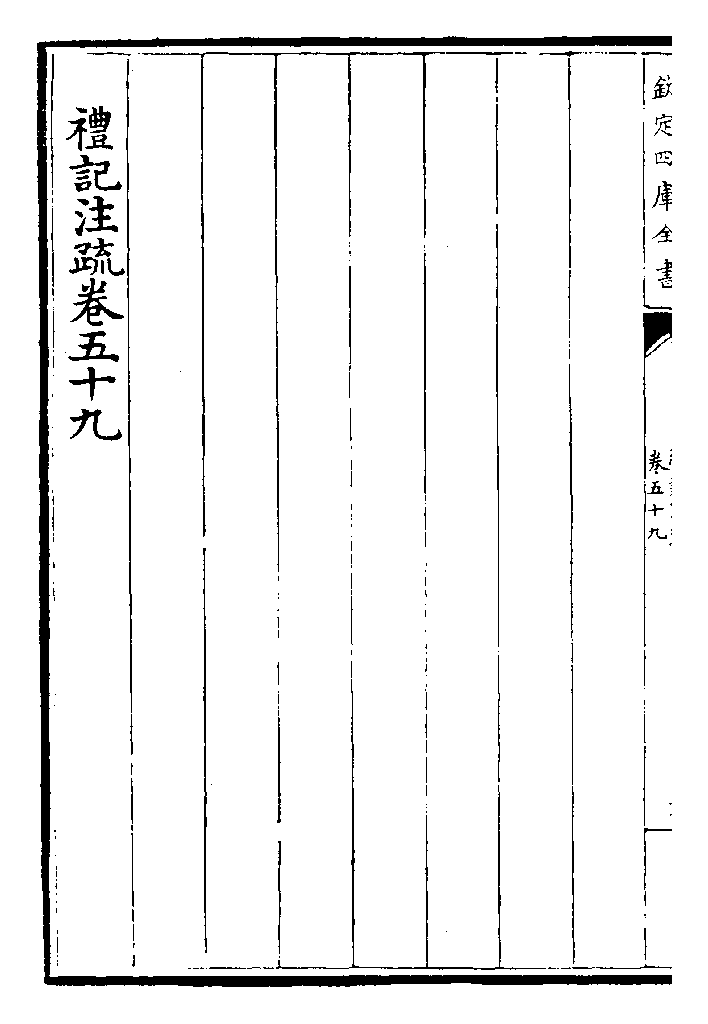 欽定四庫全書
卷五十九
禮記注疏卷五十九